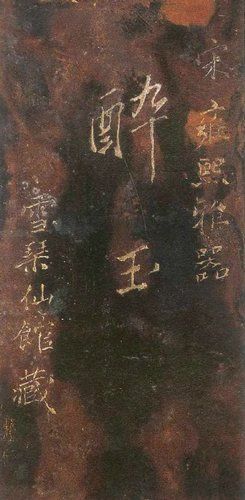 宋雍熙雅器
醉玉
雪琴仙館藏